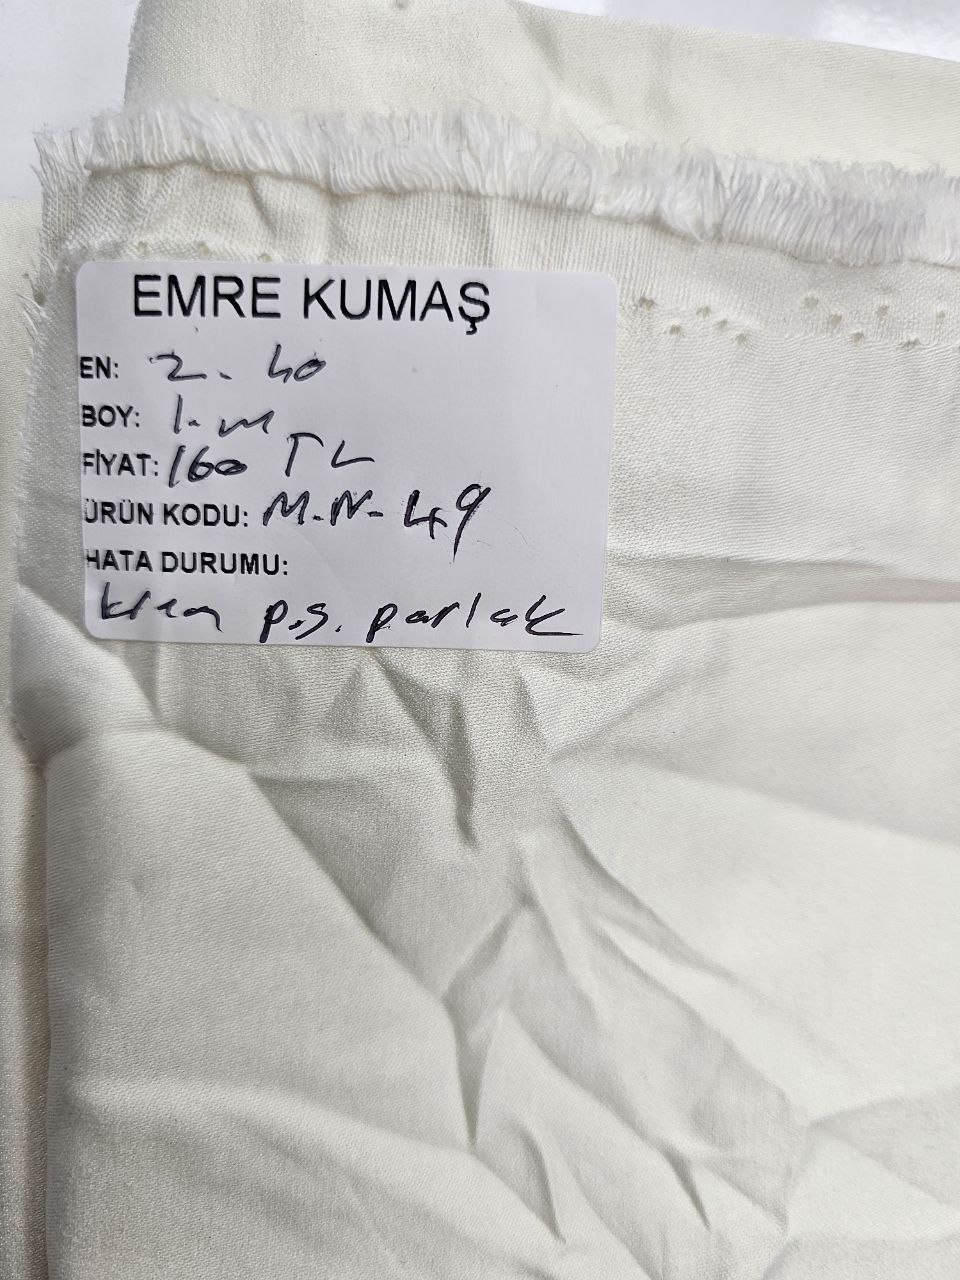 EMRE KUMAŞ
EN: 2.40
BOY: 1.m
FİYAT: 160 TL
ÜRÜN KODU: M.N-49
HATA DURUMU:
krem p.s. parlak